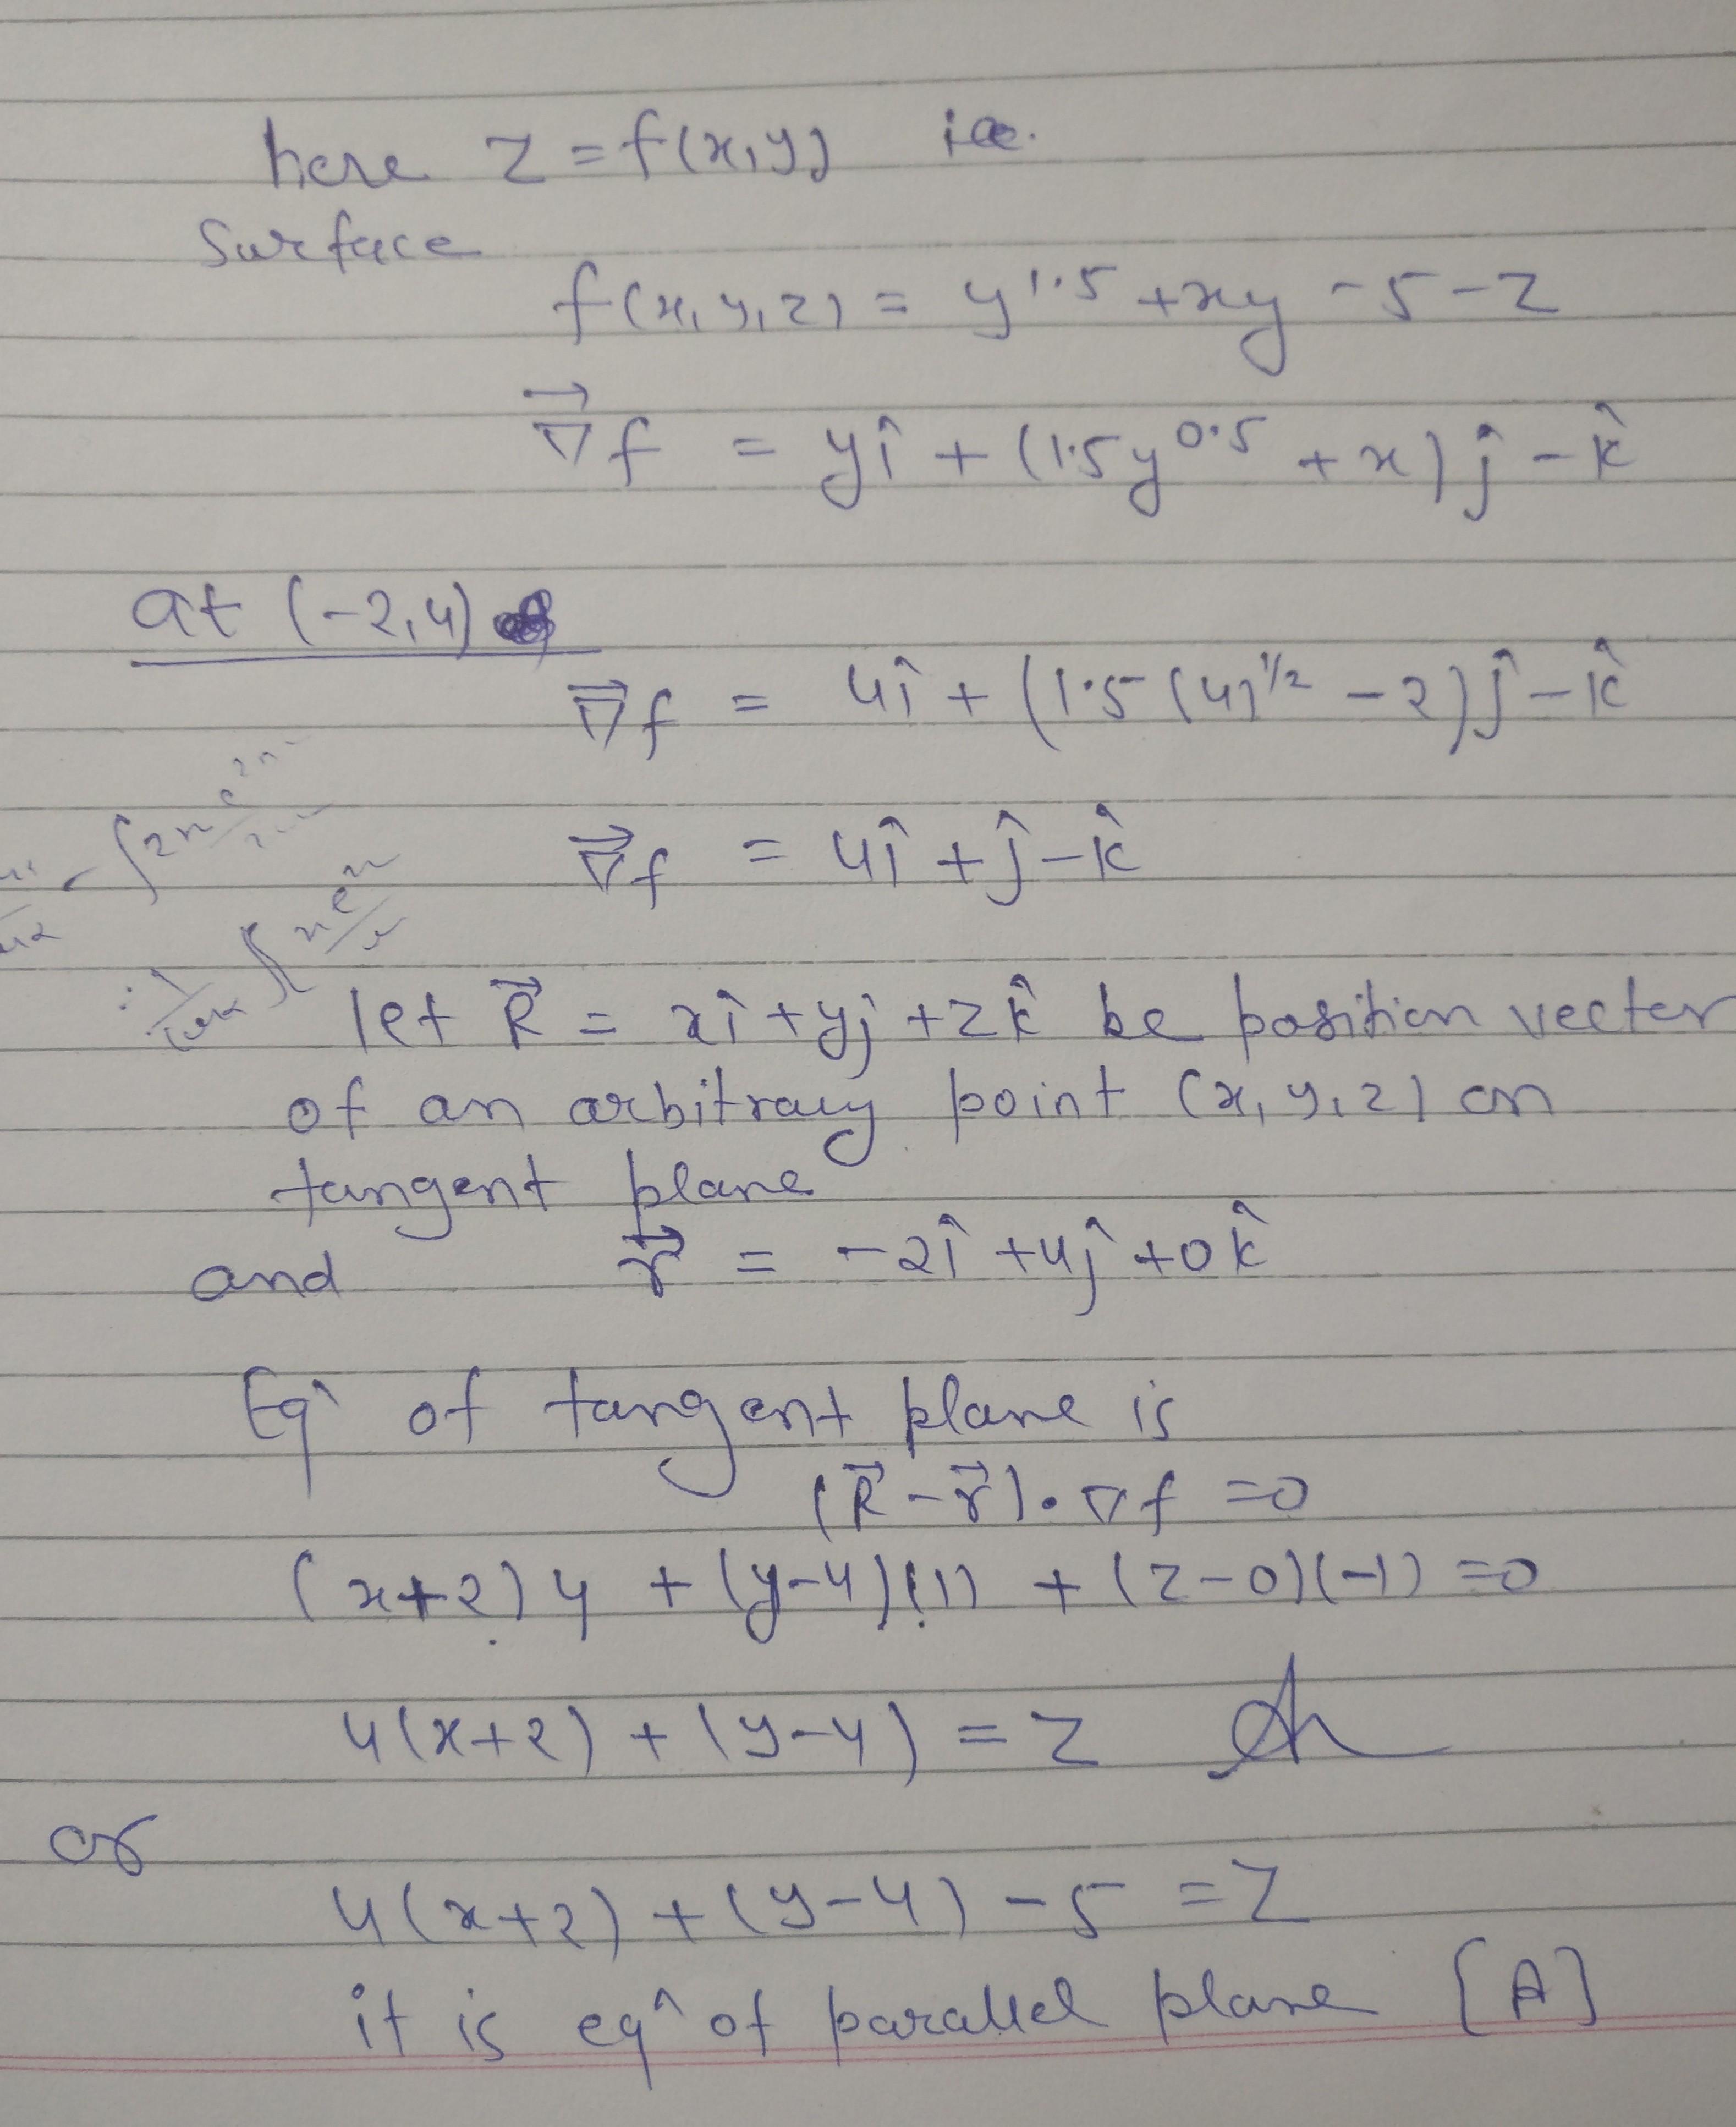 here z = f(x,y) i.e.
Surface
f(x,y,z) = y^1.5 + xy - 5 - z
∇⃗f = yî + (1.5y^0.5 + x)ĵ - k̂
at (-2,4)
∇⃗f = 4î + (1.5(4)^1/2 - 2)ĵ - k̂
∇⃗f = 4î + ĵ - k̂
let R⃗ = xî + yĵ + zk̂ be position vector
of an arbitrary point (x,y,z) on
tangent plane
and r⃗ = -2î + 4ĵ + 0k̂
Eqⁿ of tangent plane is
(R⃗ - r⃗)·∇f = 0
(x+2)4 + (y-4)(1) + (z-0)(-1) = 0
4(x+2) + (y-4) = z
or
4(x+2) + (y-4) - 5 = z
it is eqⁿ of parallel plane [A]